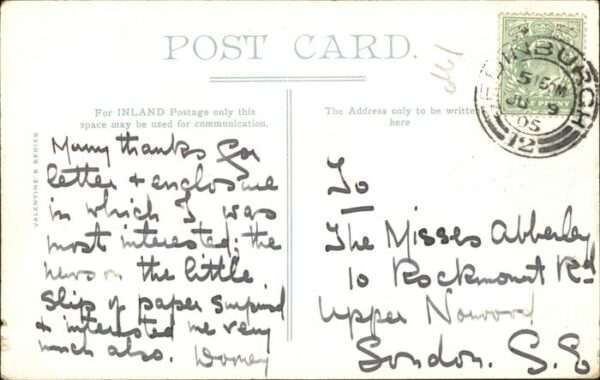 POST CARD.
For INLAND Postage only this
space may be used for communication.
The Address only to be written
here
VALENTINE'S SERIES
Many thanks for
letter & enclosure
in which I was
most interested: the
news on the little
slip of paper surprised
& interested me very
much also.
To
The Misses Abberley
10 Rockmount Rd
Upper Norwood
London. S.E
EDINBURGH
5 15 PM
JU 9
05
12